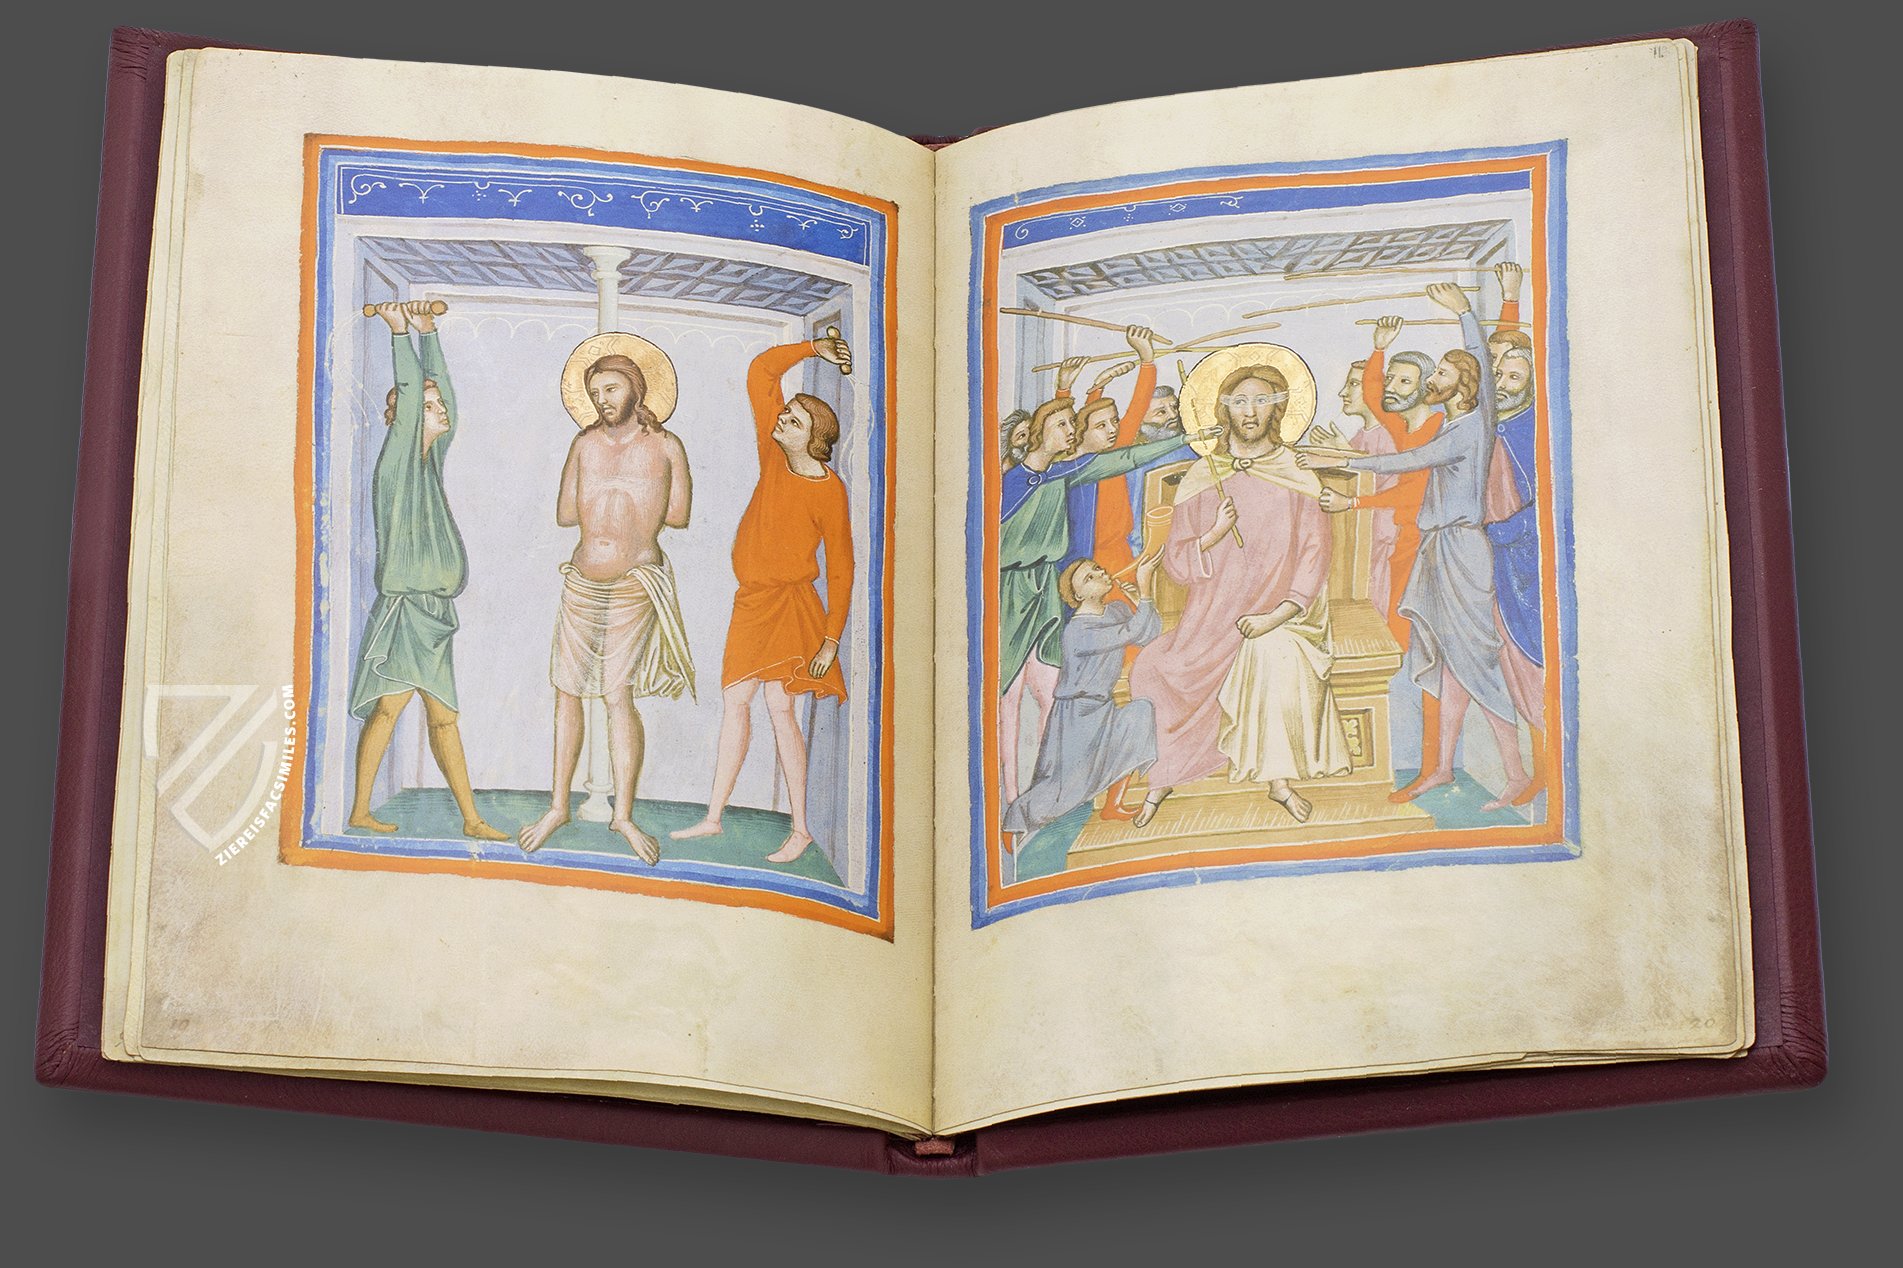 11.
ZIEREISFACSIMILES.COM
10
20